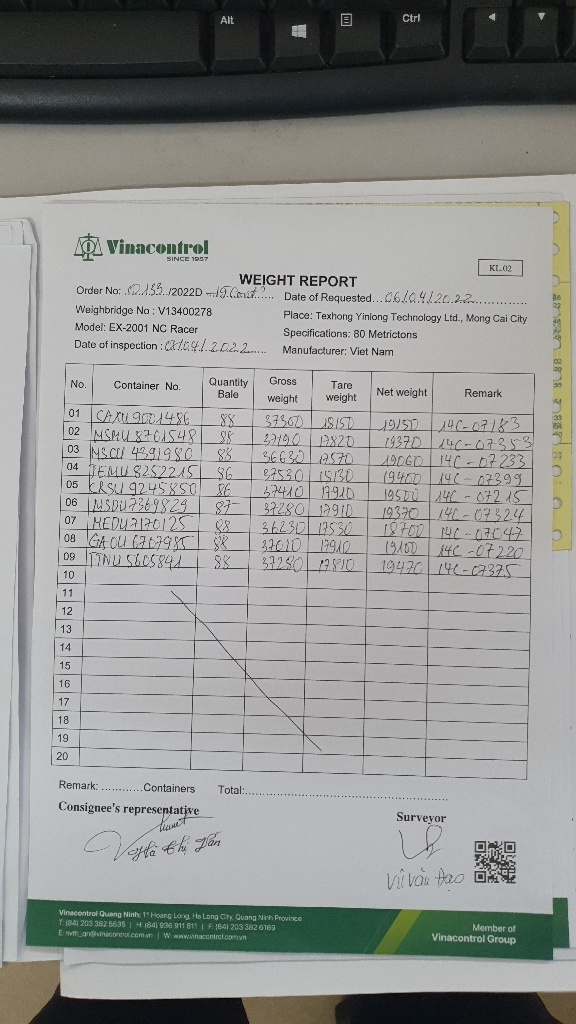 Alt
Ctrl
Vinacontrol
SINCE 1957
KL.02
WEIGHT REPORT
Order No: 02133/2022D
Date of Requested 06/04/2022
Weighbridge No : V13400278
Place: Texhong Yinlong Technology Ltd., Mong Cai City
Model: EX-2001 NC Racer
Specifications: 80 Metrictons
Date of inspection : 04/2022
Manufacturer: Viet Nam
No. Container No. Quantity Bale Gross weight Tare weight Net weight Remark
01 CAXU 9001486 88 37300 18150 19150 14C-07183
02 MSMU 8761548 88 37190 17820 19370 14C-07353
03 MSCU 4391980 88 36630 17570 19060 14C-07233
04 TEMU 8252215 86 37530 18130 19400 14C-07399
05 CRSU 9245850 86 37410 17910 19500 14C-07215
06 MSDU 7369829 87 37280 17910 19370 14C-07324
07 MEDU 7170125 88 36230 17530 18700 14C-07047
08 GAOU 6707985 88 37010 17910 19100 14C-07220
09 TTNU 5605841 88 37280 17810 19470 14C-07375
10
11
12
13
14
15
16
17
18
19
20
Remark: ............Containers Total:
Consignee's representative
Surveyor
Vũ Văn Đạo
Vinacontrol Quang Ninh: 11 Hoang Long, Ha Long City, Quang Ninh Province
T: (84) 203 382 5635 | H: (84) 936 911 811 | F: (84) 203 382 6169
W: www.vinacontrol.com.vn
Member of
Vinacontrol Group